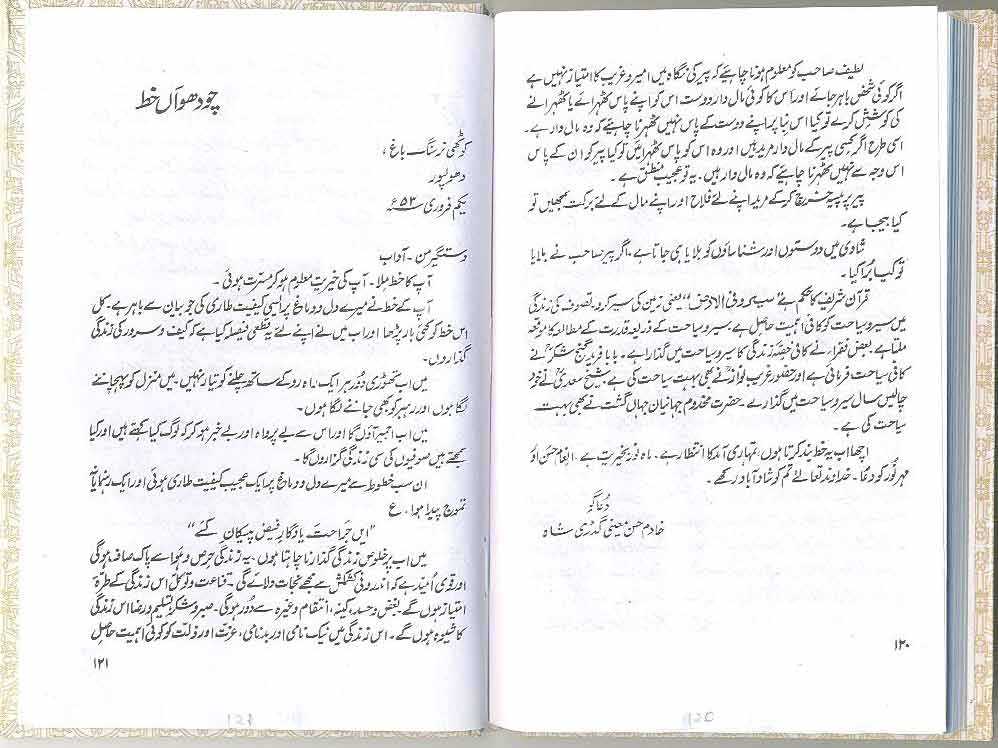 لطیف صاحب کو معلوم ہونا چاہیئے کہ پیر کی نگاہ میں امیر و غریب کا امتیاز نہیں ہے
اگر کوئی شخص باہر جائے اور اس کا کوئی مال دار دوست اس کو اپنے پاس ٹھہرائے یا ٹھہرانے
کی کوشش کرے تو کیا اس بنا پر اپنے دوست کے پاس نہیں ٹھہرنا چاہیئے کہ وہ مال دار ہے۔
اسی طرح اگر کسی پیر کے مال دار مرید ہیں اور وہ اس کو پاس ٹھہرائیں تو کیا پیر کو ان کے پاس
اس وجہ سے نہیں ٹھہرنا چاہیئے کہ وہ مال دار ہیں۔ یہ تو عجیب منطق ہے۔
پیر پر پیسہ خرچ کر کے مرید اپنے لئے فلاح اور اپنے مال کے لئے برکت سمجھیں تو
کیا بیجا ہے۔
شادی میں دوستوں اور شناساؤں کو بلایا ہی جاتا ہے۔ اگر پیر صاحب نے بلایا
تو کیا بُرا کیا۔
قرآن شریف کا حکم ہے "سیرو فی الارض" یعنی زمین کی سیر کرو۔ تصوف کی زندگی
میں سیر و سیاحت کو کافی اہمیت حاصل ہے۔ سیر و سیاحت کے ذریعہ قدرت کے مطالعہ کا موقعہ
ملتا ہے۔ بعض فقراء نے کافی حصّہ زندگی کا سیر و سیاحت میں گذارا ہے۔ بابا فرید گنج شکرؒ نے
کافی سیاحت فرمائی ہے اور حضور غریب نوازؒ نے بھی بہت سیاحت کی ہے۔ شیخ سعدیؒ نے خود
چالیس سال سیر و سیاحت میں گذارے۔ حضرت مخدوم جہانیان جہاں گشت نے بھی بہت
سیاحت کی ہے۔
اچھا اب یہ خط بند کرتا ہوں۔ تمہاری آمد کا انتظار ہے۔ ماہ نور بخیریت ہے۔ انعام حسن اور
مہر نُور کو دعا۔ خداوند تعالےٰ تم کو شاد آباد رکھے۔
دُعا گو
خادم حسن معینی گدڑی شاہ
۱۲۰
120
چودھواں خط
کوٹھی نرسنگ باغ،
دھولپور
یکم فروری ۵۳ء
دستگیر من۔ آداب
آپ کا خط ملا۔ آپ کی خیریت معلوم ہو کر مسرت ہوئی۔
آپ کے خط نے میرے دل و دماغ پر ایسی کیفیت طاری کی جو بیان سے باہر ہے۔ کل
اس خط کو کئی بار پڑھا اور اب میں نے اپنے لئے یہ قطعی فیصلہ کیا ہے کہ کیف و سرور کی زندگی
گذاروں۔
میں اب تھوڑی دُور ہر ایک راہ رو کے ساتھ چلنے کو تیار نہیں۔ میں منزل کو پہچاننے
لگا ہوں اور رہبر کو بھی جاننے لگا ہوں۔
میں اب اجمیر آؤں گا اور اس سے بے پرواہ اور بے خبر ہو کر کہ لوگ کیا کہتے ہیں اور کیا
سمجھتے ہیں صوفیوں کی سی زندگی گزاروں گا۔
ان سب خطوط سے میرے دل و دماغ پر ایک عجیب کیفیت طاری ہوئی اور ایک
تموج پیدا ہوا۔ ع
"ایں جراحت یادگارِ فیض پیکان کئے"
میں اب پر خلوص زندگی گذارنا چاہتا ہوں۔ یہ زندگی حرص و ہوا سے پاک صاف ہوگی
اور قوی اُمید ہے کہ اندرونی کشمکش سے مجھے نجات دلائے گی۔ قناعت و توکل اس زندگی کے طرّہ
امتیاز ہوں گے۔ بغض و حسد، کینہ، انتقام وغیرہ سے دُور ہوگی۔ صبر و شکر تسلیم و رضا اس زندگی
کا شیوہ ہوں گے۔ اس زندگی میں نیک نامی اور بدنامی، عزت اور ذلت کو کوئی اہمیت حاصل
۱۲۱
121